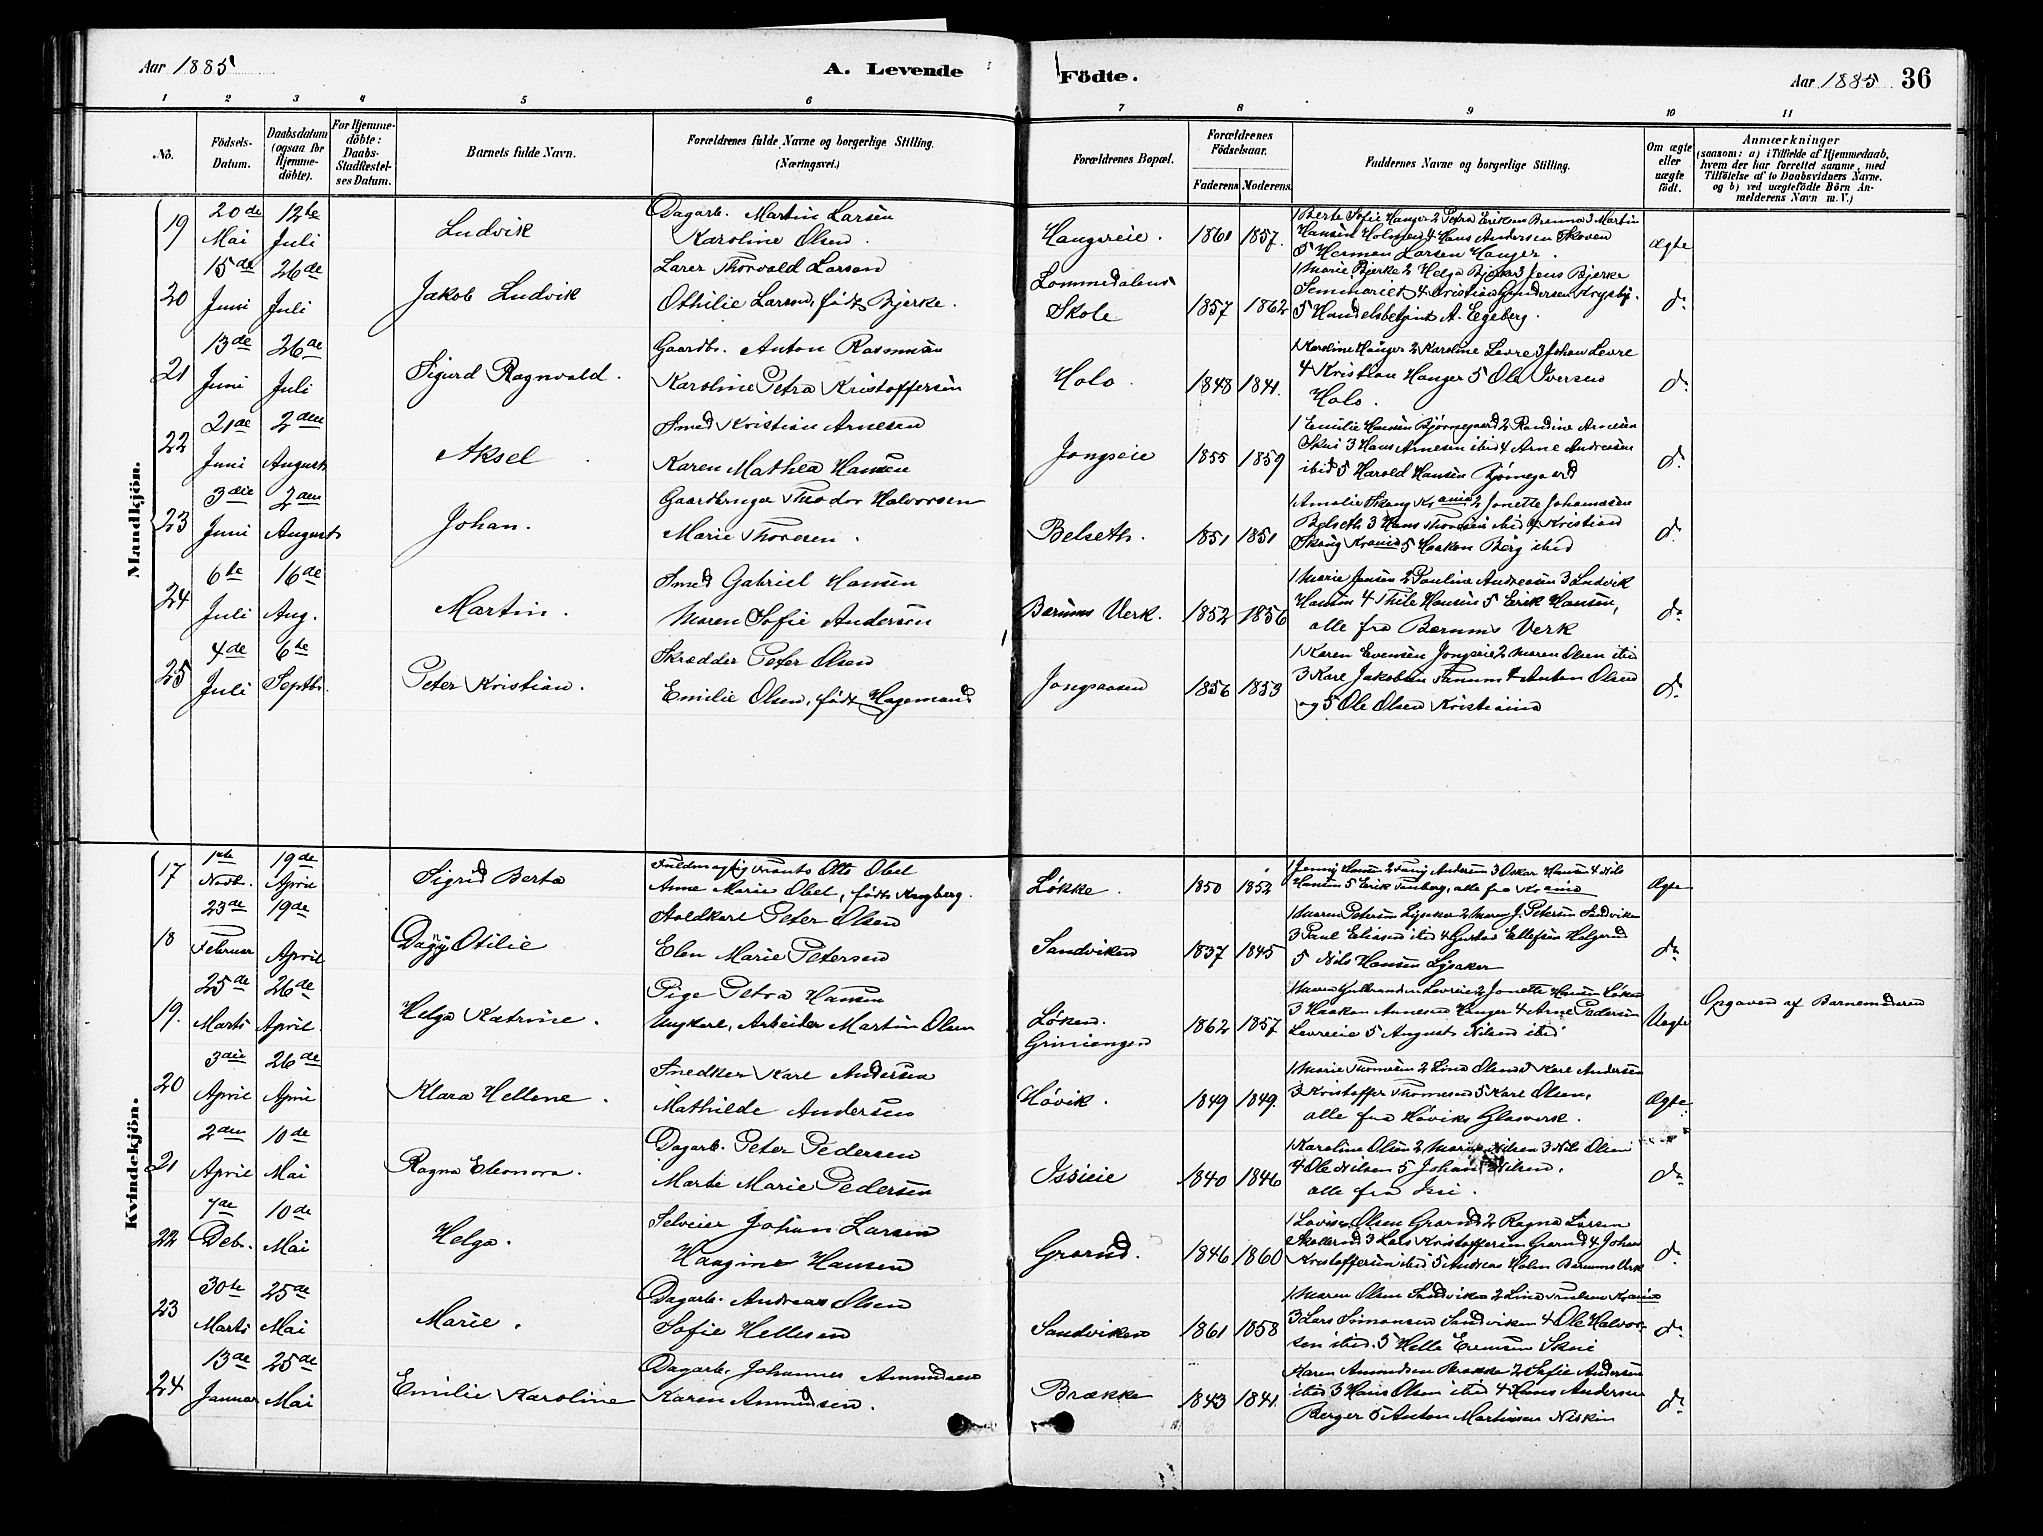 Aar 1885
A. Levende
Födte.
Aar 1885 36
1 2 3 4 5 6 7 8 9 10 11
No.
Födsels-Datum.
Daabsdatum (ogsaa för Hjemme-döbte).
For Hjemme-döbte: Daabs-Stadfæstel-ses Datum.
Barnets fulde Navn.
Forældrenes fulde Navne og borgerlige Stilling.
(Næringsvei.)
Forældrenes Bopæl.
Forældrenes Födselsaar.
Faderens Moderens
Faddernes Navne og borgerlige Stilling.
Om ægte eller uægte födt.
Anmærkninger
(saasom: a) i Tilfælde af Hjemmedaab,
hvem der har forrettet samme, med
Tilföielse af to Daabsvidners Navne,
og b) ved uægtefödte Börn An-
melderens Navn m. V.)
Mandkjön.
19 20de Mai 12te Juli Ludvik
Dagarb. Martin Larsen
Karoline Olsen.
Haugereie. 1861 1857.
1 Berte Sofie Hauger 2 Petra Eriksen Brenna 3 Martin
Hansen Holmen 4 Hans Andersen Skoven
5 Herman Larsen Hauger.
ægte
20 15de Juni 26de Juli Jakob Ludvik
Lærer Thorvald Larsen
Othilie Larsen, født Bjerke.
Lommedalens Skole 1857 1862
1 Marie Bjerke 2 Helga Bjerke 3 Jens Bjerke
Seminariet 4 Kristian Gundersen Krysby.
5 Handelsbetjent A. Egeberg.
do
21 13de Juni 26de Juli Sigurd Ragnvald.
Gaardbr. Anton Rasmusen
Karoline Petra Kristoffersen
Holo. 1848 1841.
1 Karoline Hauger 2 Karoline Levre 3 Johan Levre
4 Kristian Hauger 5 Ole Iversen
Holo.
do
22 21de Juni 2den August Aksel
Smed Kristian Arnesen
Karen Mathea Hansen
Jongseie 1855 1859
1 Emilie Hansen Bjørnegaard 2 Randine Arnesen
Skui 3 Hans Arnesen ibid 4 Arne Andresen
ibid 5 Harald Hansen Bjørnegaard
do
23 3die Juni 2den August Johan.
Gaardbruger Theodor Halvorsen
Marie Thoresen.
Belseth. 1851 1851
1 Amalie Skaug Krania 2 Jonette Johannesen
Belseth 3 Hans Thoresen ibid 4 Kristian
Skaug Krania 5 Haakon Berg ibid
do
24 6te Juli 16de Aug. Martin.
Smed Gabriel Hansen
Maren Sofie Andersen
Bærums Verk. 1852 1856
1 Marie Jensen 2 Pauline Andreasen 3 Ludvik
Hansen 4 Thile Hansen 5 Erik Hansen,
alle fra Bærums Verk
do
25 4de Juli 6te Septbr. Peter Kristian.
Skredder Peter Olsen
Emilie Olsen, født Hagemand
Jongsaasen 1856 1853
1 Karen Evensen Jongseie 2 Maren Olsen ibid
3 Karl Jakobsen Tanum 4 Anton Olsen
og 5 Ole Olsen Kristiania
do
Kvindekjön.
17 1ste Novb. 19de April Sigrid Berta
Fuldmægtig Frants Otto Obel
Anne Marie Obel, født Kragberg.
Løkke. 1850 1852
1 Jenny Hansen 2 Fanny Andersen 3 Oskar Hansen 4 Nils
Hansen 5 Erik Tanberg, alle fra Krania
Ægte
18 23de Februar 19de April Dagny Otilie
Stoldkarl Peter Olsen
Elen Marie Petersen
Sandviken 1837 1845
1 Maren Petersen Lysaker 2 Maren J. Petersen Sandviken
3 Paul Eliasen ibid 4 Gustav Ellefsen Helgerud
5 Nils Hansen Lysaker
do
19. 25de Marts 26de April. Helga Katrine.
Pige Petra Hansen
Ungkarl, Arbeider Martin Olsen
Løken. Griniengen 1862 1857
1 Maren Gulbrandsen Levreie 2 Jonette Hansen Løken
3 Haaken Annesen Hauger 4 Arne Pedersen
Levreie 5 August Nilsen ibid
Uægte
Opgaven af Barnemoderen
20 3die April 26de April Klara Hellene.
Snedker Karl Andersen
Mathilde Andersen
Høvik. 1849 1849.
1 Marie Thomesen 2 Lina Olsen 3 Karl Andersen
3 Kristoffer Thomesen 5 Karl Olsen,
alle fra Høviks Glasverk.
Ægte
21 2den April 10de Mai Ragna Eleonora.
Dagarb. Peter Pedersen
Marte Marie Pedersen
Isieie 1840 1846
1 Karoline Olsen 2 Marie Nilsen 3 Nils Olsen
4 Ole Nilsen 5 Johan Nilsen,
alle fra Isi.
do
22 7de Deb. 10de Mai Helga.
Selveier Johan Larsen
Haagine Hansen
Grorud. 1846 1860
1 Lovise Olsen Grorud 2 Ragna Larsen
Skollerud 3 Lars Kristoffersen Grorud 4 Johan
Kristoffersen ibid 5 Andreas Holm Bærums Verk
do
23 30te Marts 25de Mai Marie.
Dagarb. Andreas Olsen
Sofie Hellesen
Sandviken 1861 1858
1 Maren Olsen Sandviken 2 Lina Paulsen Krania
3 Lars Simonsen Sandviken 4 Ole Halvor-
sen ibid. 5 Helle Evensen Skui
do
24 13de Januar 25de Mai Emilie Karoline
Dagarb. Johannes Amundsen
Karen Amundsen.
Brække 1843 1841.
Karen Amundsen Brække 2 Sofie Andersen
ibid 3 Hans Olsen ibid 4 Hans Andersen
Berger 5 Anton Martinsen Niskin
do